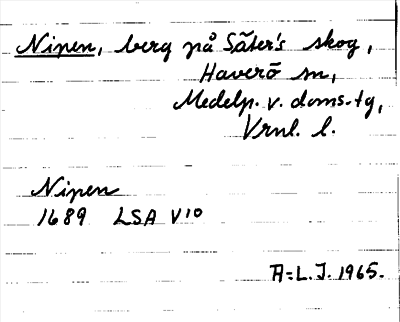 Nipen, berg på Säter's skog,
Haverö sn,
Medelp. v. doms-tg,
Vrnl. l.
Nipen
1689 LSA V10
A=L.J. 1965.